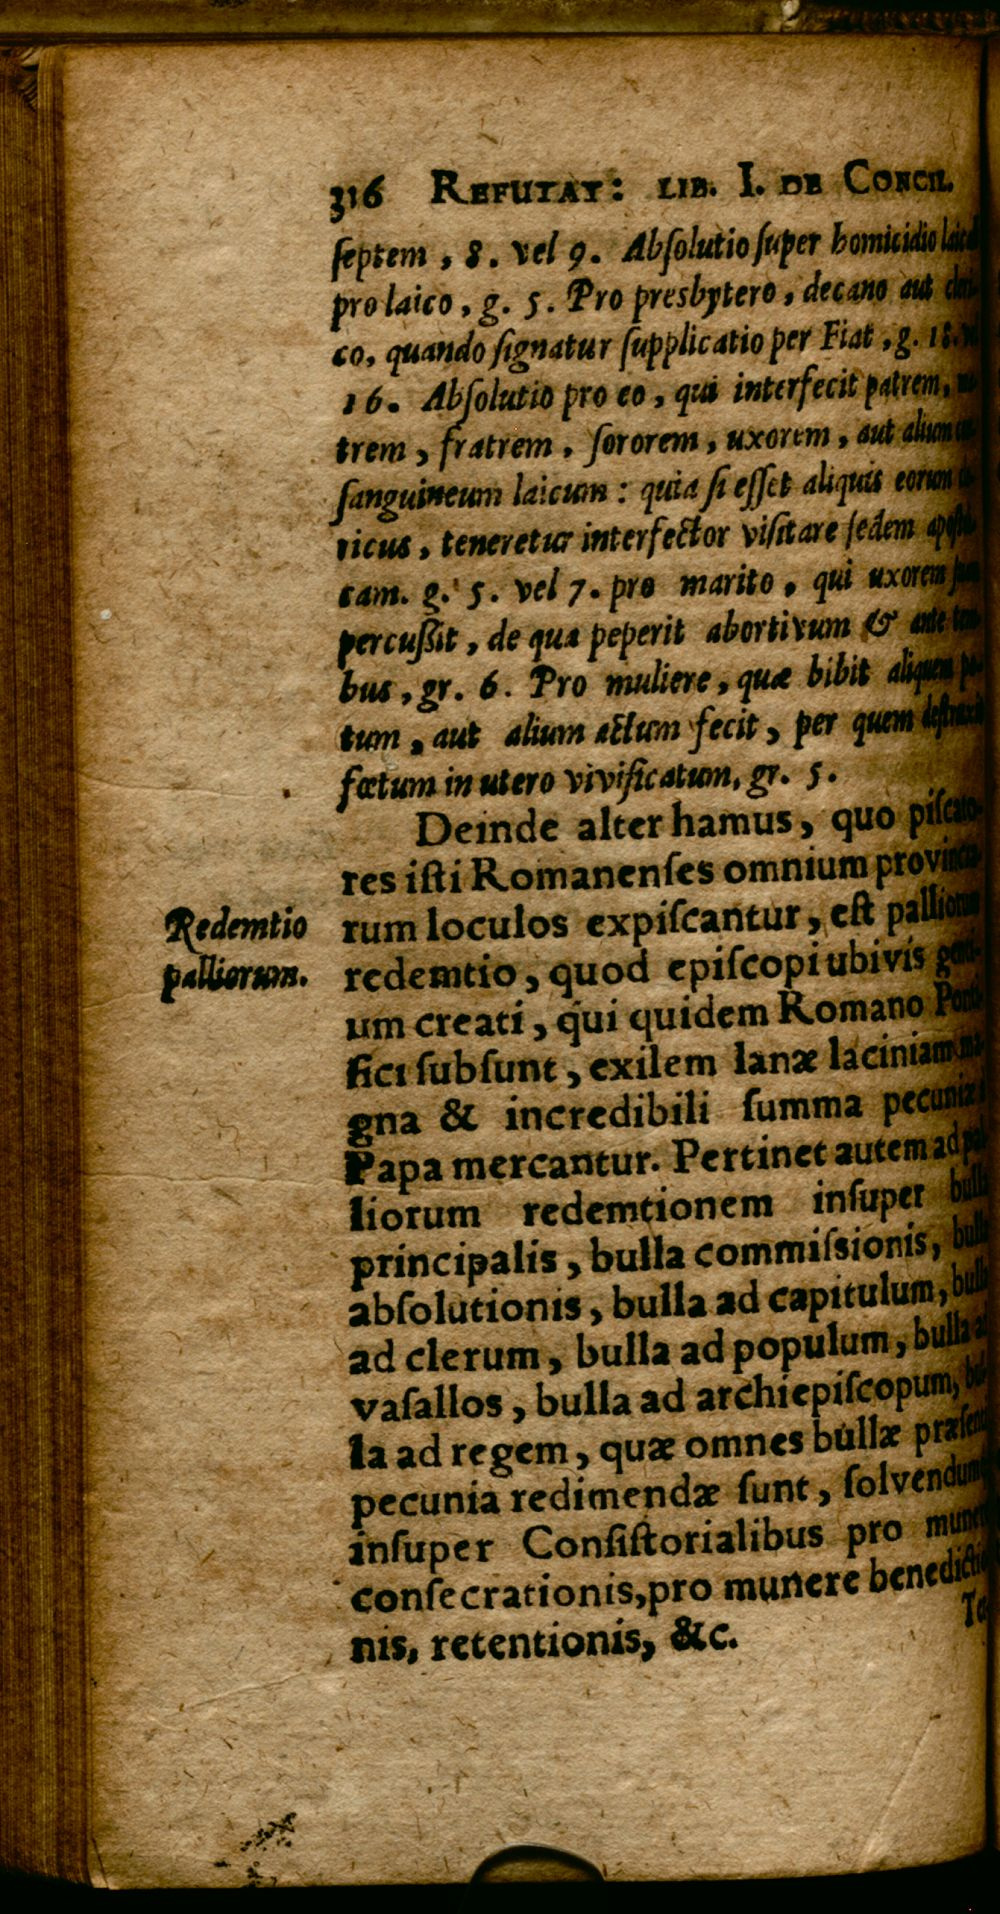 316 REFUTAT: LIB. I. DE CONCIL.
ſeptem, 8. vel 9. Abſolutio ſuper homicidio
pro laico, g. 5. Pro presbytero, decano aut
co, quando ſignatur ſupplicatio per Fiat, g.
16. Abſolutio pro eo, qui interfecit patrem,
trem, fratrem, ſororem, uxorem, aut alium
ſanguineum laicum: quia ſi eſſet aliquis eorum
ricus, teneretur interfector viſitare ſedem
cam. g. 5. vel 7. pro marito, qui uxorem
percuſſit, de qua peperit abortivum & ante
bus, gr. 6. Pro muliere, quæ bibit aliquem
tum, aut alium actum fecit, per quem deſtruxit
fœtum in utero vivificatum, gr. 5.
Deinde alter hamus, quo piſcato-
res iſti Romanenſes omnium provincia-
rum loculos expiſcantur, eſt palliorum
redemtio, quod epiſcopi ubivis
um creati, qui quidem Romano
fici ſubſunt, exilem lanæ laciniam
gna & incredibili ſumma pecuniæ
Papa mercantur. Pertinet autem ad
liorum redemtionem inſuper bulla
principalis, bulla commiſsionis, bulla
abſolutionis, bulla ad capitulum, bulla
ad clerum, bulla ad populum, bulla
vaſallos, bulla ad archiepiſcopum,
la ad regem, quæ omnes bullæ
pecunia redimendæ ſunt,
inſuper Conſiſtorialibus pro
conſecrationis, pro munere
nis, retentionis, &c.
Redemtio
palliorum.